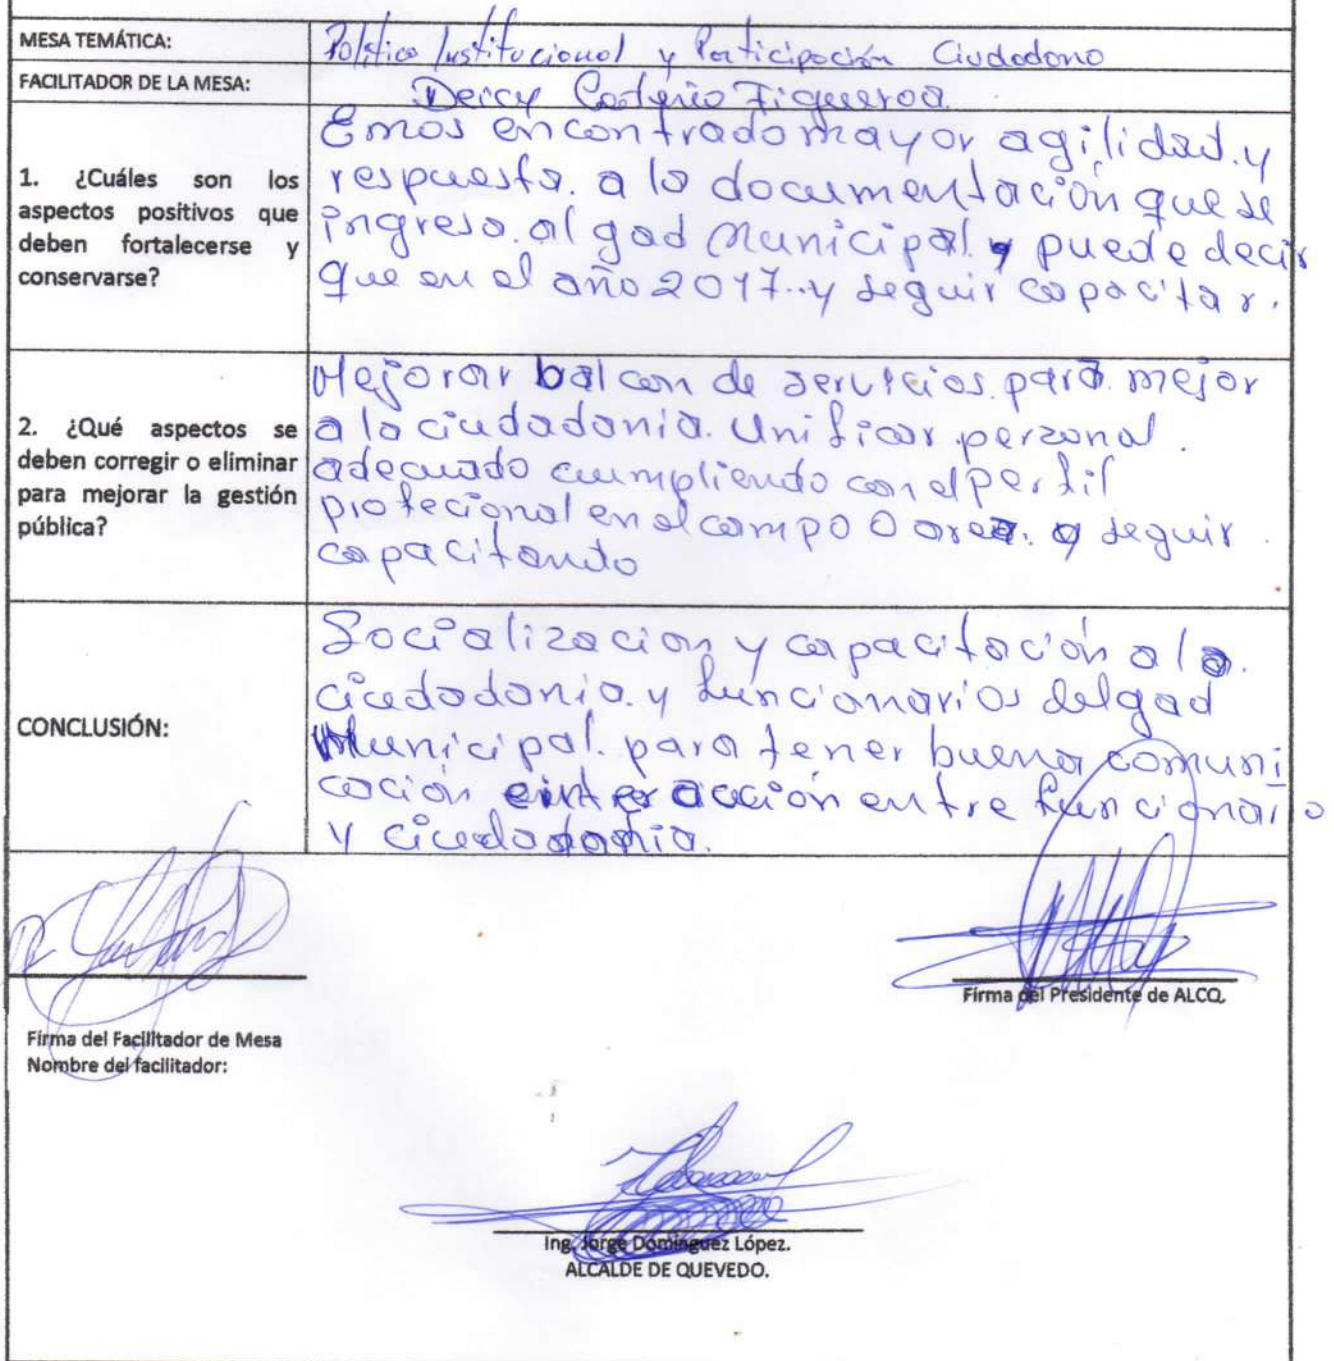 MESA TEMÁTICA: Política Institucional y Participación Ciudadana
FACILITADOR DE LA MESA: Deicy Cedeño Figueroa
1. ¿Cuáles son los aspectos positivos que deben fortalecerse y conservarse?
Emos encontrado mayor agilidad. y
respuesta. a la documentación que se
ingreso. al gad Municipal. y puede decir
que en el año 2017. y seguir capacitar.
2. ¿Qué aspectos se deben corregir o eliminar para mejorar la gestión pública?
Mejorar balcon de servicios. para mejor
a la ciudadania. Unificar personal.
adecuado cumpliendo con el perfil
profecional en el campo O area. y seguir.
capacitando
CONCLUSIÓN:
Socializacion y capacitación a la.
ciudadania. y funcionarios del gad
Municipal. para tener buena comuni
cación e interacción entre funcionario
y ciudadania.
Firma del Presidente de ALCQ.
Firma del Facilitador de Mesa
Nombre del facilitador:
Ing. Jorge Domínguez López.
ALCALDE DE QUEVEDO.